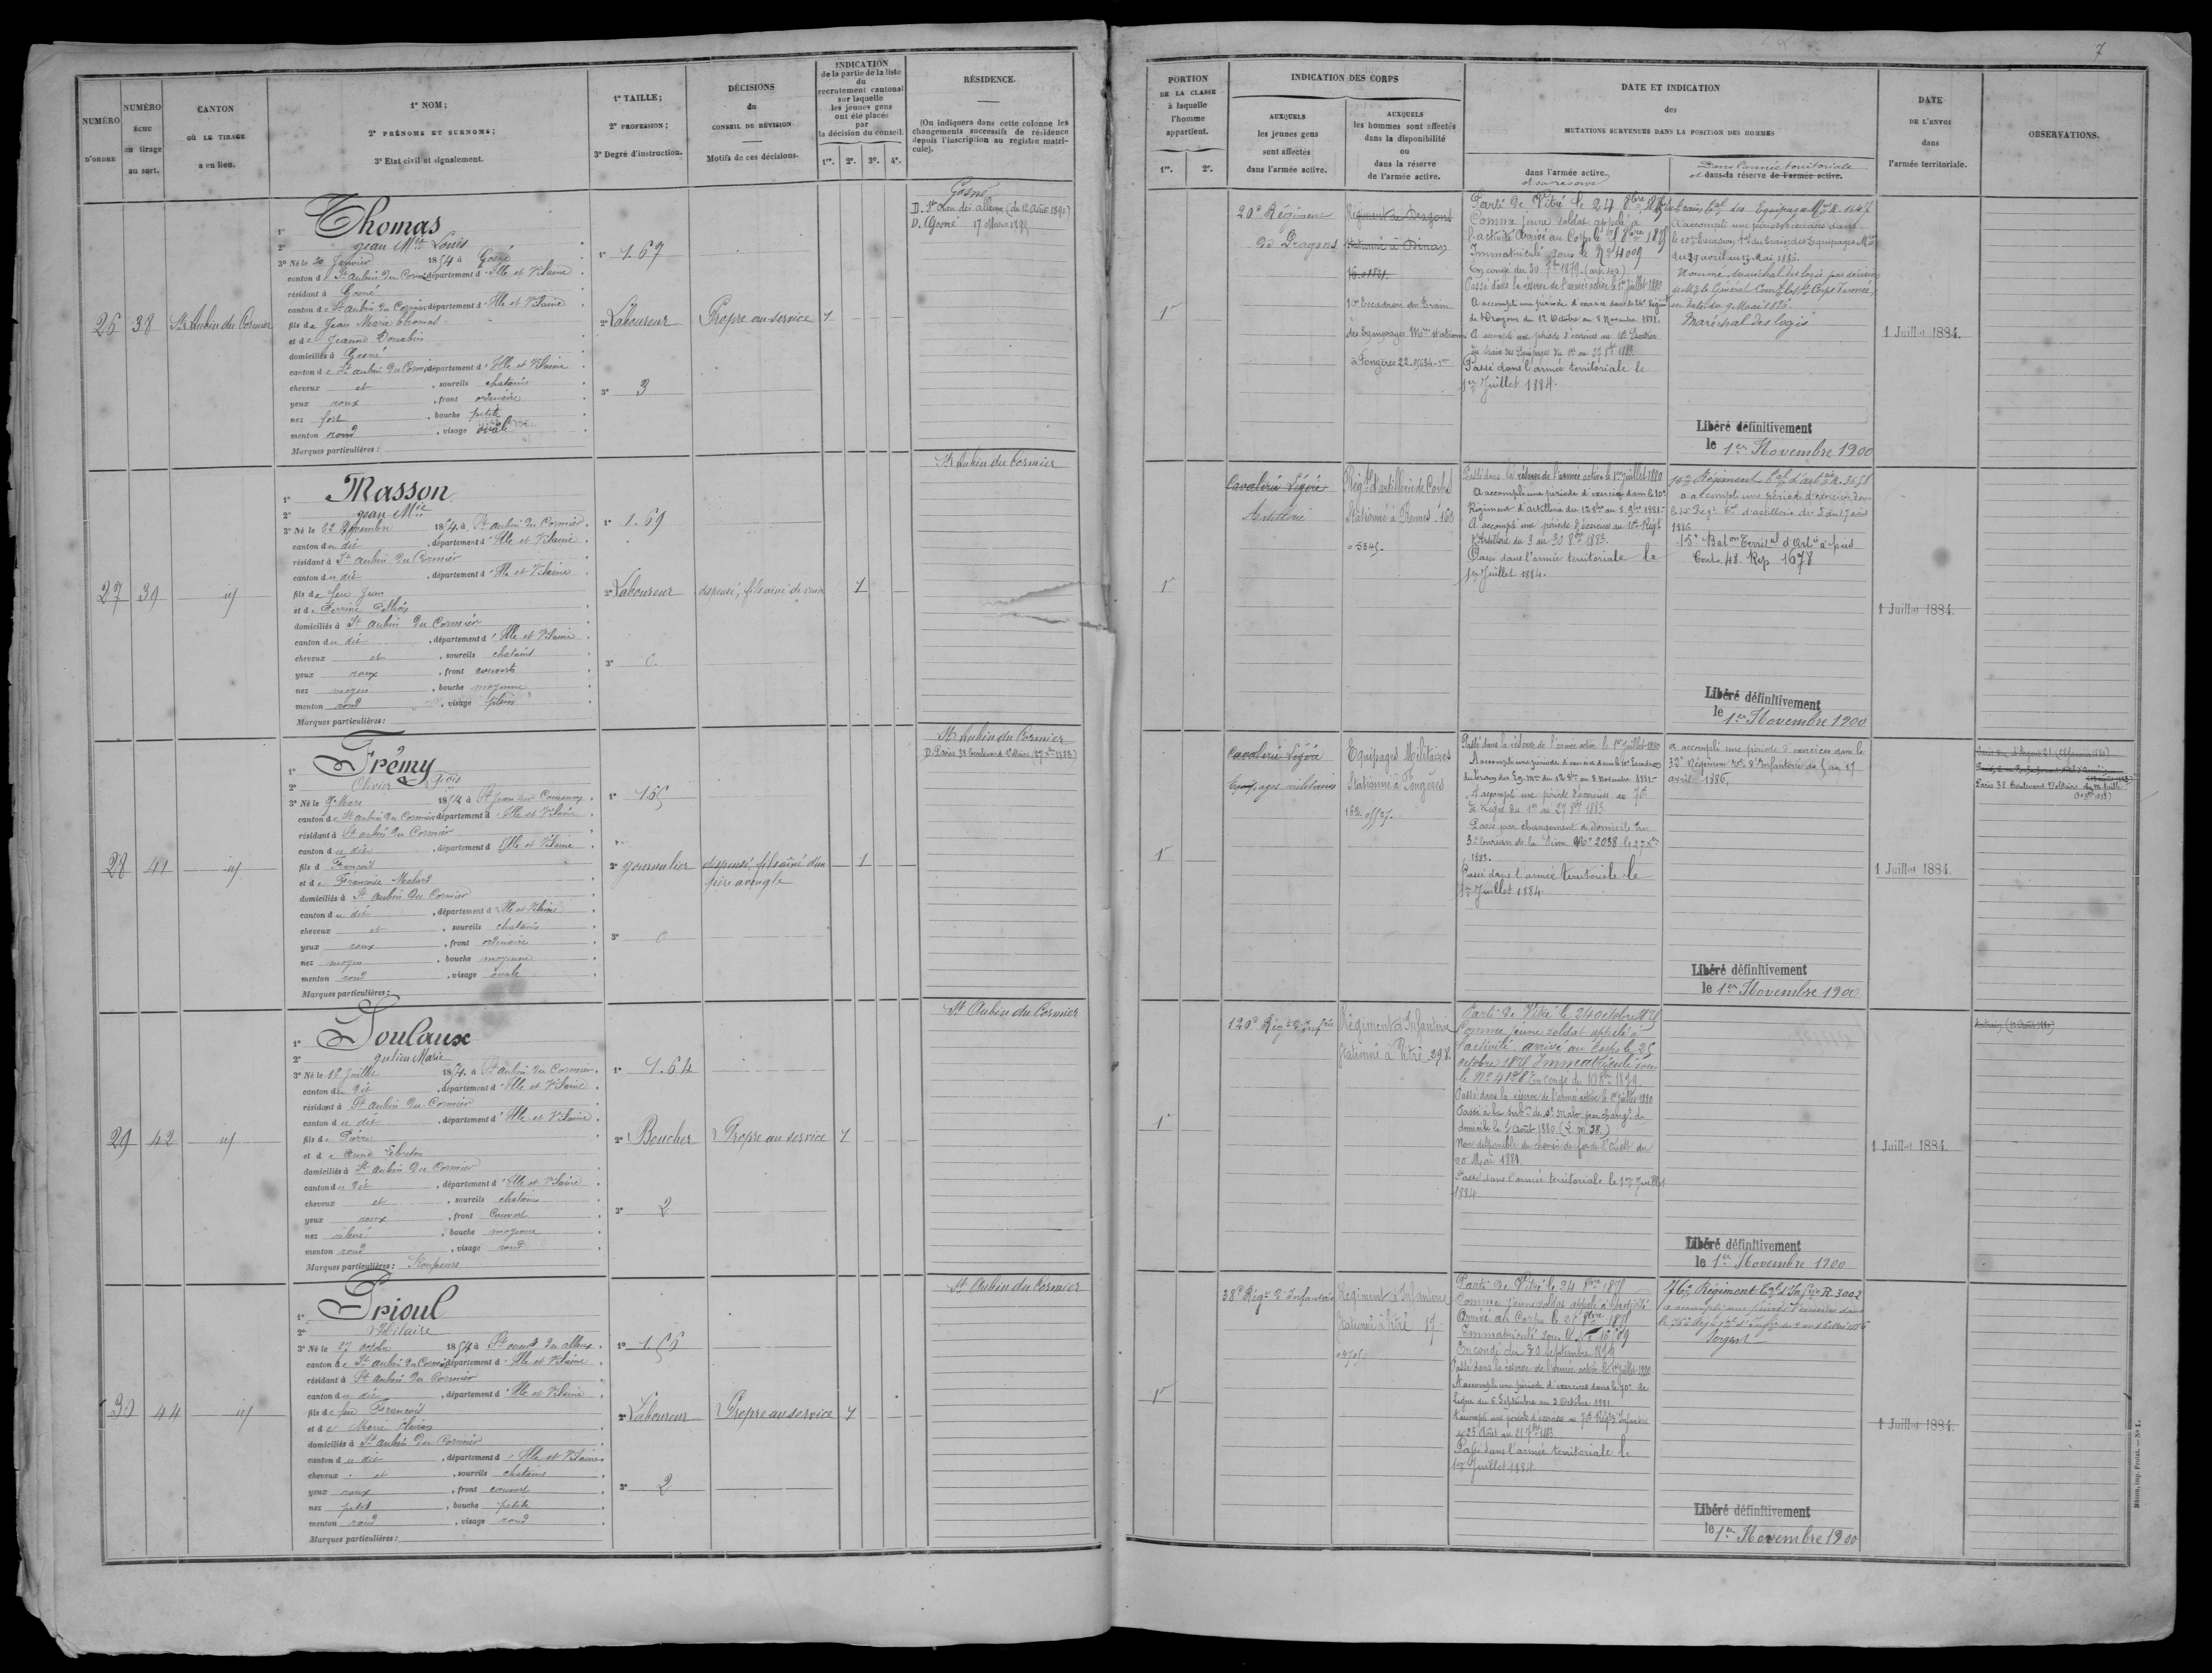 7
NUMÉRO
D'ORDRE
NUMÉRO
ÉCHU
au tirage
au sort.
CANTON
OÙ LE TIRAGE
a eu lieu.
1° NOM;
2° PRÉNOMS ET SURNOMS;
3° Etat civil et signalement.
1° TAILLE;
2° PROFESSION;
3° Degré d'instruction.
DÉCISIONS
du
CONSEIL DE RÉVISION
Motifs de ces décisions.
INDICATION
de la partie de la liste
du
recrutement cantonal
sur laquelle
les jeunes gens
ont été placés
par
la décision du conseil.
1re. 2e. 3e. 4e.
RÉSIDENCE.
(On indiquera dans cette colonne les
changements successifs de résidence
depuis l'inscription au registre matri-
cule).
PORTION
DE LA CLASSE
à laquelle
l'homme
appartient.
1re. 2e.
INDICATION DES CORPS
AUXQUELS
les jeunes gens
sont affectés
dans l'armée active.
AUXQUELS
les hommes sont affectés
dans la disponibilité
ou
dans la réserve
de l'armée active.
DATE ET INDICATION
des
MUTATIONS SURVENUES DANS LA POSITION DES HOMMES
dans l'armée active.
et sa réserve
Dans l'armée territoriale
et dans la réserve de l'armée active.
DATE
DE L'ENVOI
dans
l'armée territoriale.
OBSERVATIONS.
26 38 St Aubin du Cormier
1° Thomas
2° Jean Mie Louis
3° Né le 20 Janvier 1854 à Gosné
canton de St aubin du Cormier département d'Ille et Vilaine
résidant à Gosné
canton de St aubin du Cormier département d'Ille et Vilaine
fils de Jean Marie Thomas
et de Jeanne
domiciliés à Gosné
canton de St aubin du Cormier département d'Ille et Vilaine
cheveux et , sourcils chatains
yeux roux , front ordinaire
nez fort , bouche petite
menton rond , visage ovale
Marques particulières :
1° 1.67
2° Laboureur
3° 3
Propre au service 1
Gosné
D. Gosné 17 Mars 1893
1re
20e Régiment
de Dragons
Régiment de Dragons
stationné à Dinan
10e Escadron du Train
des Equipages Mres stationné
à Fougères
Parti de Vitré le 24 8bre 1875
Comme jeune soldat appelé à
l'activité Arrivé au Corps le 8bre 1875
Immatriculé sous le No 4009
En congé du 30 7bre 1879.
Passé dans la réserve de l'armée active le 1er juillet 1880
A accompli une période d'exercice dans le 24e Régiment
de Dragons du 12 Octobre au 8 Novembre 1881.
A accompli une période d'exercices au 10e Escadron
du train des Equipages du 1er au 27 8bre 1883.
Passé dans l'armée territoriale le
1er Juillet 1884.
A accompli une période d'exercices dans
le 10e Escadron tal du train des Equipages Mres
du 29 avril au 13 Mai 1886.
Nommé Maréchal des logis par décision
en date du 9 Mai 1886.
Maréchal des logis
Libéré définitivement
le 1er Novembre 1900
1 Juillet 1884.
27 39 id
1° Masson
2° Jean Mie
3° Né le 22 Novembre 1854 à St aubin du Cormier
canton du dit , département d'Ille et Vilaine
résidant à St aubin du Cormier
canton du dit , département d'Ille et Vilaine
fils de feu Jean
et de Perrine
domiciliés à St aubin du Cormier
canton du dit , département d'Ille et Vilaine
cheveux et , sourcils chatains
yeux roux , front couvert
nez moyen , bouche moyenne
menton rond , visage plein
Marques particulières :
1° 1.69
2° Laboureur
3° 0
dispensé, fils ainé de veuve 1
St Aubin du Cormier
1re
Cavalerie Légère
Artillerie
Régt d'artillerie de Corps
Stationné à Rennes
Passé dans la réserve de l'armée active le 1er juillet 1880
A accompli une période d'exercice dans le 10e
Régiment d'Artillerie du 12 8bre au 8 9bre 1881.
A accompli une période d'exercices au 10e Régt
d'Artillerie du 3 au 30 8bre 1883.
Passé dans l'armée territoriale le
1er Juillet 1884.
10e Régiment tal d'artrie R. 3658
a accompli une période d'exercices dans
1886
15e Baton Territal d'Artie à pied
Contle 48 Rep 1678
Libéré définitivement
le 1er Novembre 1900
1 Juillet 1884.
28 41 id
1° Frémy
2° Olivier Fçois
3° Né le 9 Mars 1854 à St Jean sur Couesnon
canton de St aubin du Cormier département d'Ille et Vilaine
résidant à St aubin du Cormier
canton du dit , département d'Ille et Vilaine
fils d François
et de Françoise
domiciliés à St aubin du Cormier
canton du dit , département d'Ille et Vilaine
cheveux et , sourcils chatains
yeux roux , front ordinaire
nez moyen , bouche moyenne
menton rond , visage ovale
Marques particulières :
1° 1.65
2° journalier
3° 0
dispensé, fils aîné d'un 1
père aveugle
St Aubin du Cormier
D. Paris 38 boulevard Voltaire (27 Xbre 1883)
1re
Cavalerie Légère
Equipages militaires
Equipages Militaires
Stationné à Fougères
Passé dans la réserve de l'armée active le 1er juillet 1880
A accompli une période d'exercice dans le 10e Escadron
du train des Eq. Mres du 12 8bre au 8 Novembre 1881.
A accompli une période d'exercices au 70e
de Ligne du 1er au 27 8bre 1883.
Passé par changement de domicile au
3e bureau de la Seine No 2038 le 27 Xbre
1883.
Passé dans l'armée territoriale le
1er Juillet 1884.
a accompli une période d'exercices dans le
32e Régiment tal d'Infanterie du 5 au 17
avril 1886.
Libéré définitivement
le 1er Novembre 1900
1 Juillet 1884.
Paris 38 Boulevard Voltaire
29 42 id
1° Doulaux
2° Julien Marie
3° Né le 12 Juillet 1854 à St aubin du Cormier
canton du dit , département d'Ille et Vilaine
résidant à St aubin du Cormier
canton du dit , département d'Ille et Vilaine
fils de Pierre
et de Anne Lebreton
domiciliés à St aubin du Cormier
canton du dit , département d'Ille et Vilaine
cheveux et , sourcils chatains
yeux roux , front couvert
nez relevé , bouche moyenne
menton rond , visage rond
Marques particulières :
1° 1.64
2° Boucher
3° 2
Propre au service 1
St Aubin du Cormier
1re
120e Régt d'Infrie
Régiment d'Infanterie
Stationné à Vitré 298.
Parti de Vitré le 24 octobre 1875
Comme jeune soldat appelé à
l'activité, arrivé au Corps le 25
octobre 1875 Immatriculé sous
le No 4198
Passé dans la réserve de l'armée active le 1er juillet 1880
Passé à la subon de St Malo par changt de
domicile le 5 Août 1880
Non disponible du chemin de fer de l'Ouest du
20 Mai 1881.
Passé dans l'armée territoriale le 1er Juillet
1884
Libéré définitivement
le 1er Novembre 1900
1 Juillet 1884.
30 44 id
1° Prioul
2° Hilaire
3° Né le 27 octobre 1854 à St ouen des alleux
canton de St aubin du Cormier département d'Ille et Vilaine
résidant à St aubin du Cormier
canton du dit , département d'Ille et Vilaine
fils de feu François
et de Marie
domiciliés à St aubin du Cormier
canton du dit , département d'Ille et Vilaine
cheveux et , sourcils chatains
yeux roux , front couvert
nez petit , bouche petite
menton rond , visage rond
Marques particulières :
1° 1.66
2° Laboureur
3° 2
Propre au service 1
St Aubin du Cormier
1re
38e Régt d'Infanterie
Régiment d'Infanterie
Stationné à Vitré
Parti de Vitré le 24 8bre 1875
Comme jeune soldat appelé à l'activité
Arrivé au Corps le 25 8bre 1875
Immatriculé sous le No
En congé du 30 Septembre 1879
Passé dans la réserve de l'armée active le 1er juillet 1880
A accompli une période d'exercices dans le 70e de
Ligne du 6 Septembre au 3 Octobre 1881.
A accompli une période d'exercices au 70e Régt d'Infanterie
du 25 Août au 21 7bre 1883.
Passé dans l'armée territoriale le
1er Juillet 1884.
76e Régiment tal d'Infrie R. 3002
Sergent
Libéré définitivement
le 1er Novembre 1900
1 Juillet 1884.